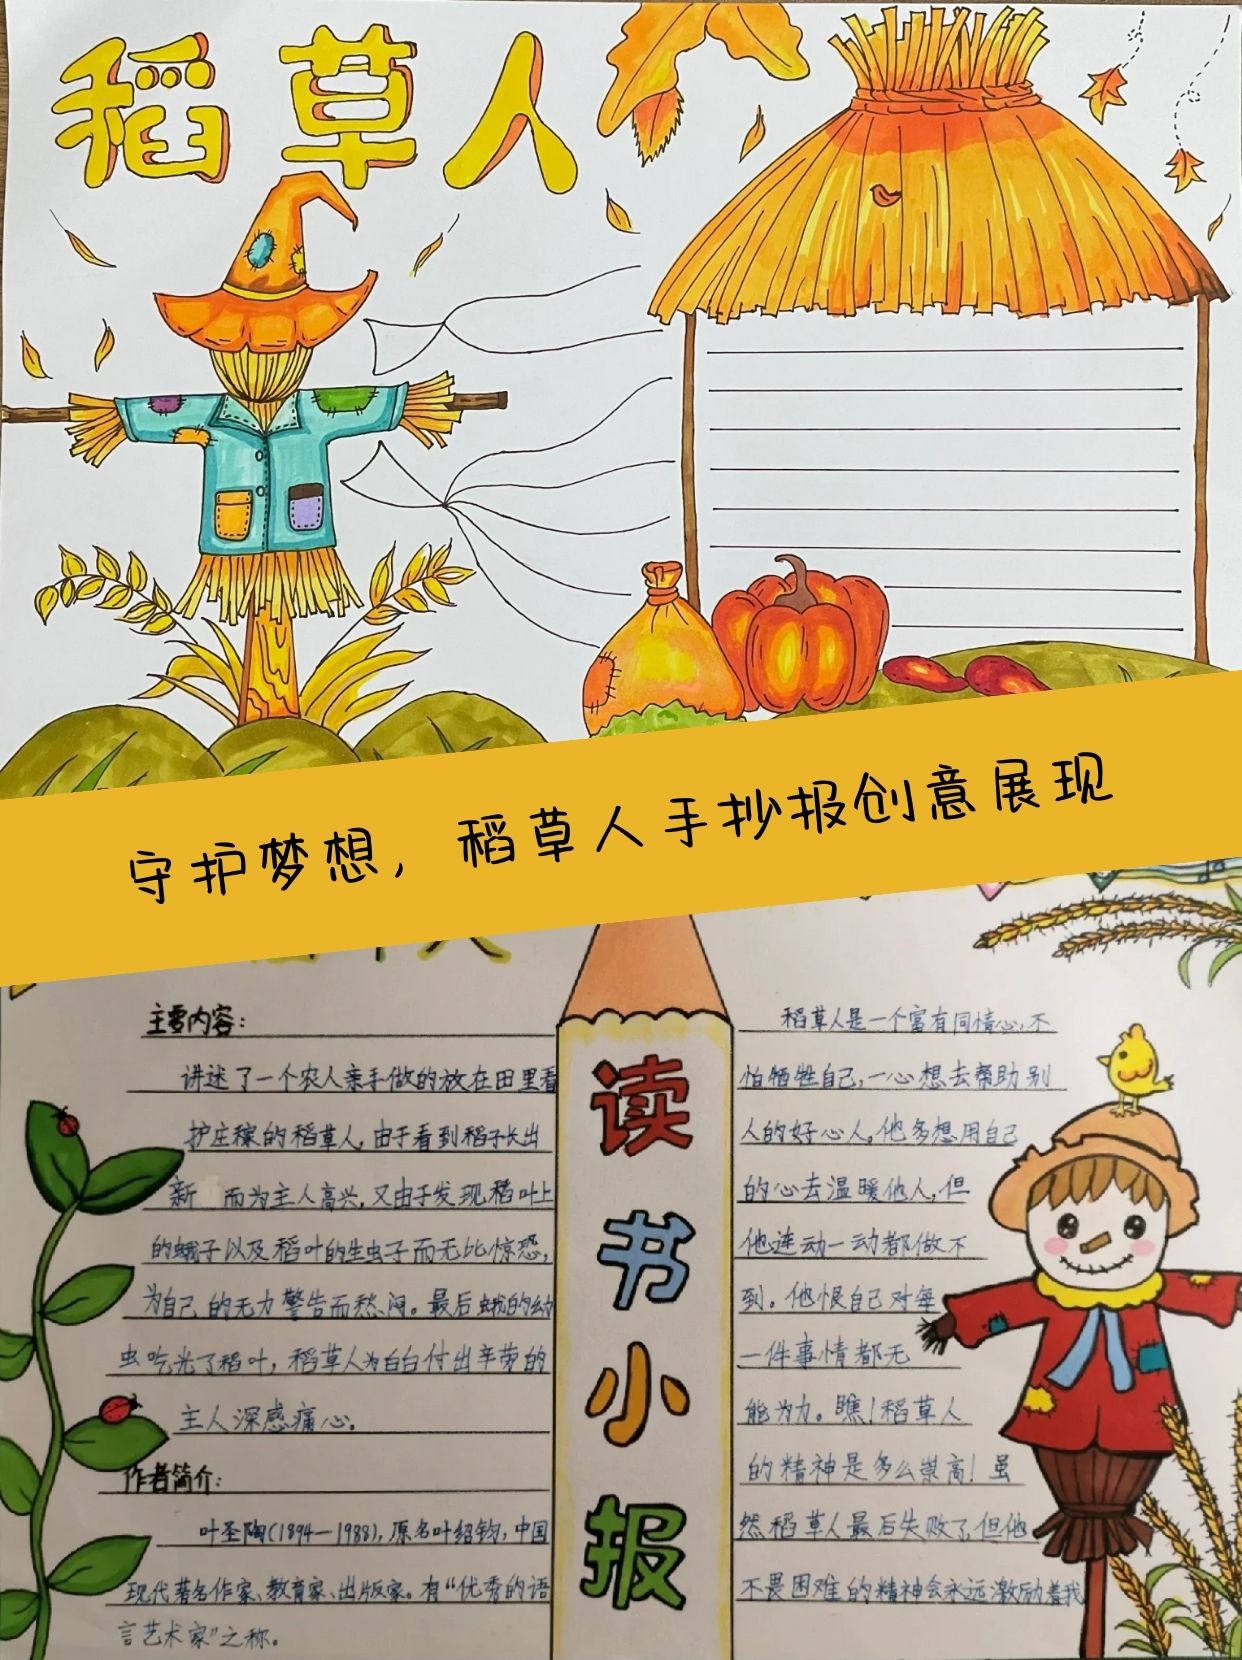 稻草人
守护梦想，稻草人手抄报创意展现
主要内容：
讲述了一个农人亲手做的放在田里看
护庄稼的稻草人，由于看到稻子长出
新 而为主人高兴，又由于发现稻叶上
的蛾子以及稻叶的生虫子而无比惊恐，
为自己的无力警告而愁闷。最后蛾的幼
虫吃光了稻叶，稻草人为白白付出辛劳的
主人深感痛心。
作者简介：
叶圣陶(1894—1988)，原名叶绍钧，中国
现代著名作家、教育家、出版家。有“优秀的语
言艺术家”之称。
读书小报
稻草人是一个富有同情心，不
怕牺牲自己，一心想去帮助别
人的好心人。他多想用自己
的心去温暖他人，但
他连动一动都做不
到。他恨自己对每
一件事情都无
能为力。瞧！稻草人
的精神是多么崇高！虽
然稻草人最后失败了，但他
不畏困难的精神会永远激励着我